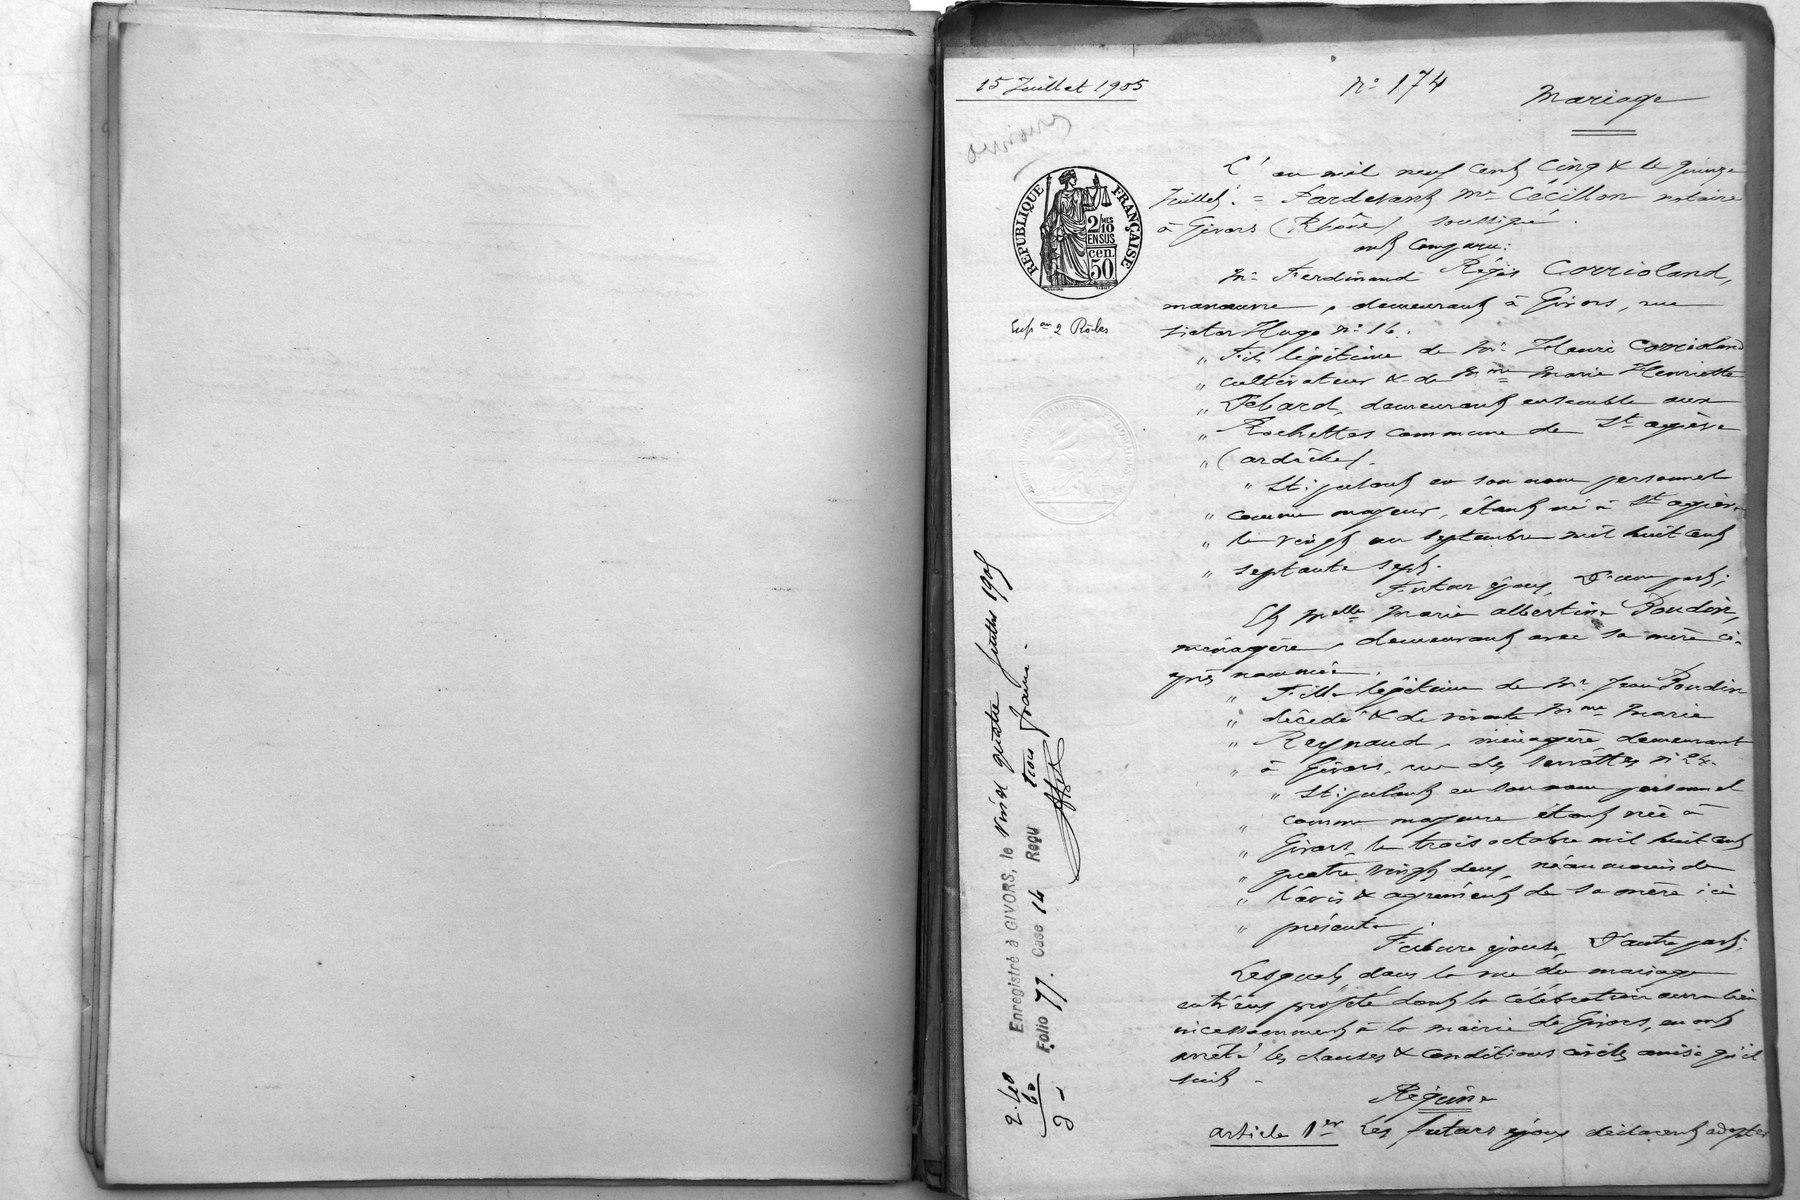 15 Juillet 1905
N° 174
Mariage
L'an mil neuf cent cinq & le quinze
Juillet. = Pardevant Me Cécillon notaire
à Givors (Rhône) soussigné.
ont comparu:
Mr Ferdinand Régis Corrioland,
manœuvre, demeurant à Givors, rue
Victor Hugo n° 16.
" Fils légitime de Mr Henri Corrioland
" cultivateur & de Mme Marie Henriette
" demeurant ensemble aux
" Rochettes commune de St agrève
" (ardèche).
" Stipulant en son nom personnel
" comme majeur, étant né à St agrève
" le vingt un septembre mil huit cent
" septante sept.
Futur époux, D'une part;
Et Melle Marie albertine Boudin,
ménagère, demeurant avec sa mère ci-
après nommée.
" Fille légitime de Mr Jean Boudin
" décédé & de vivante Mme Marie
" Reynaud, ménagère demeurant
" à Givors, rue des
" Stipulant en son nom personnel
" comme majeure étant née à
" Givors, le trois octobre mil huit cent
" quatre vingt deux, néanmoins de
" l'avis & agrément de sa mère ici
" présente.
Future épouse, D'autre part;
Lesquels, dans la vue du mariage
entr'eux projeté dont la célébration aura lieu
incessamment à la mairie de Givors, en ont
arrêté les clauses & conditions civiles ainsi qu'il
suit
Régime
article 1er Les futurs époux déclarent adopter
RÉPUBLIQUE FRANÇAISE
2/10 MES
EN SUS
cen.
50
2 Rôles
Enregistré à GIVORS, le vingt quatre juillet 1905
Folio 77. Case 14 Reçu trois francs
2.40
60
3 -